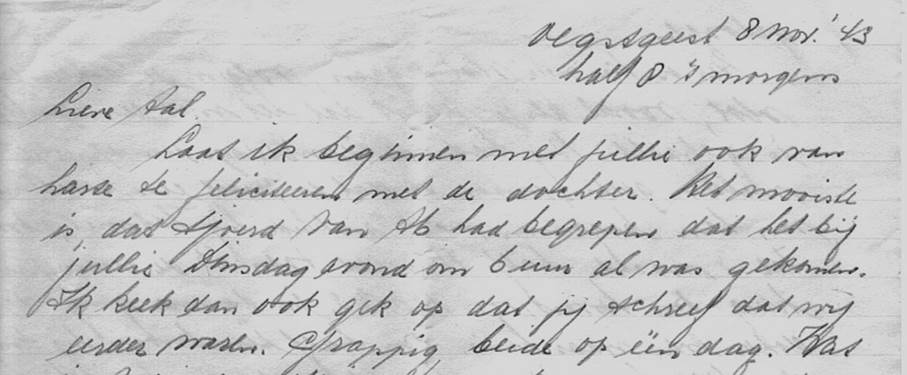 Oegstgeest 8 Nov. '43
half 8 's morgens
Lieve Aal.
Laat ik beginnen met jullie ook van
harte te feliciteeren met de dochter. Het mooiste
is, dat Sjoerd van Ab had begrepen dat het bij
jullie Dinsdag avond om 6 uur al was gekomen.
Ik keek dan ook gek op dat jij schreef dat wij
eerder waren. Grappig, beide op één dag. Was